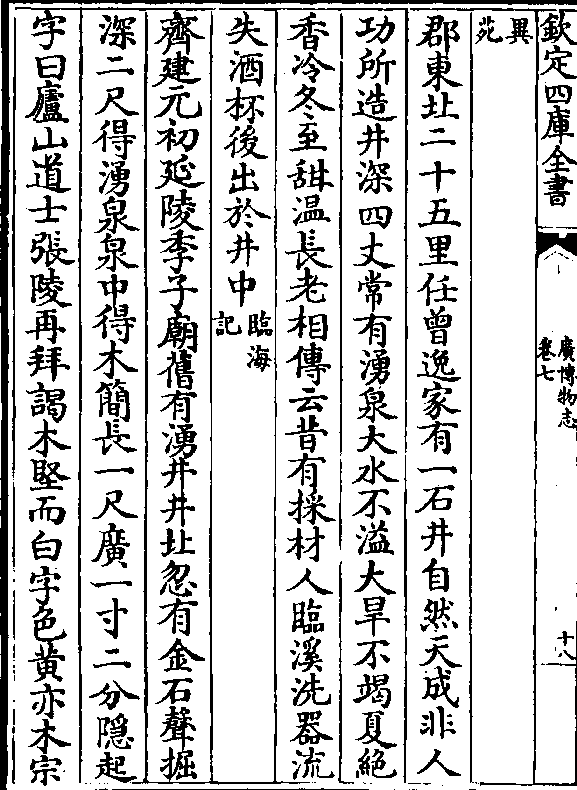 欽定四庫全書
廣博物志
卷七
十八
異
苑
郡東北二十五里任曾逸家有一石井自然天成非人
功所造井深四丈常有湧泉大水不溢大旱不竭夏絶
香冷冬至甜温長老相傳云昔有採材人臨溪洗器流
失酒杯後出於井中臨海
記
齊建元初延陵季子廟舊有湧井井北忽有金石聲掘
深二尺得湧泉泉中得木簡長一尺廣一寸二分隱起
字曰廬山道士張陵再拜謁木堅而白字色黄亦木宗